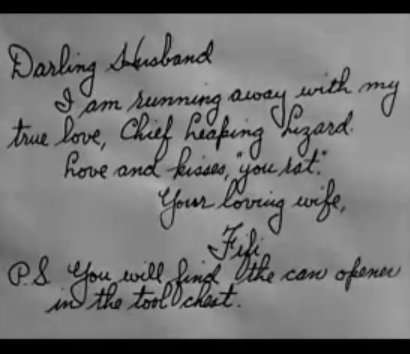 Darling Husband
I am running away with my
true love, Chief Leaping Lizard.
Love and kisses, "you rat."
Your loving wife,
Fifi
P.S. You will find the can opener
in the tool chest.